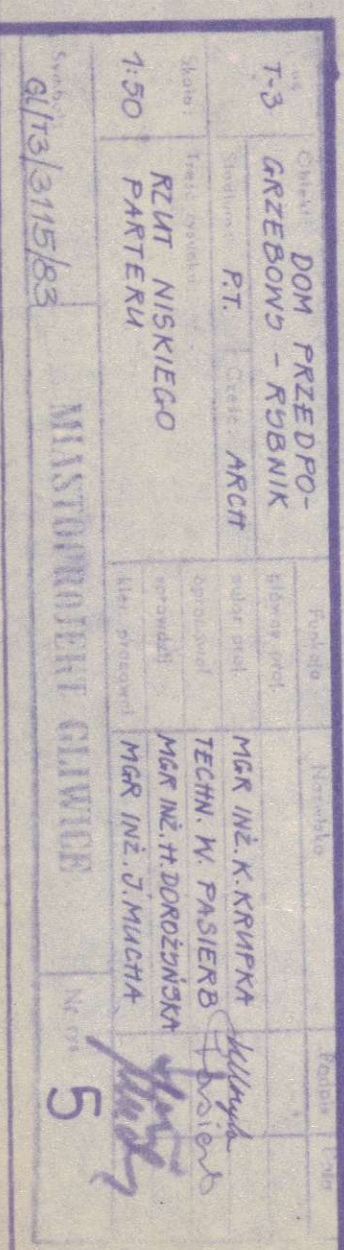 Obiekt: DOM PRZEDPO-
T-3 GRZEBOWY - RYBNIK
Stadium: P.T. Część: ARCH
Skala: Treść rysunku:
1:50 RZUT NISKIEGO
PARTERU
Funkcja Nazwisko Podpis Data
główny proj.
autor proj. MGR INŻ. K. KRUPKA
opracował TECHN. W. PASIERB Pasierb
sprawdził MGR INŻ. H. DOROŻYŃSKA
kier. pracowni MGR INŻ. J. MUCHA
Symbol
GL/T3/3115/83
MIASTOPROJEKT GLIWICE
Nr rys.
5